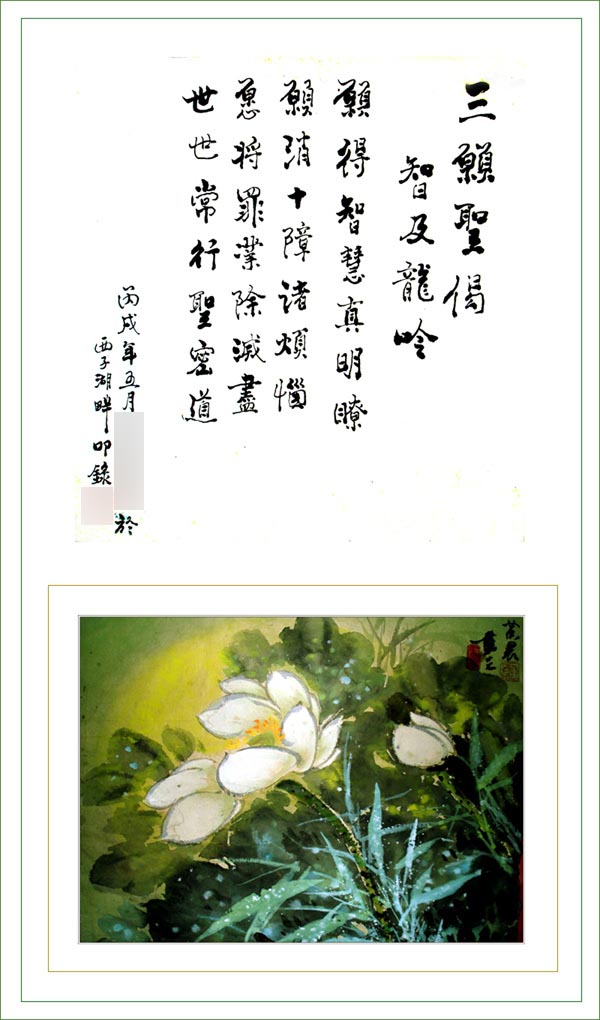 三願聖偈
智及龍吟
願得智慧真明瞭
願消十障諸煩惱
愿將罪業除滅盡
世世常行聖密道
丙戌年五月 於
西子湖畔叩錄